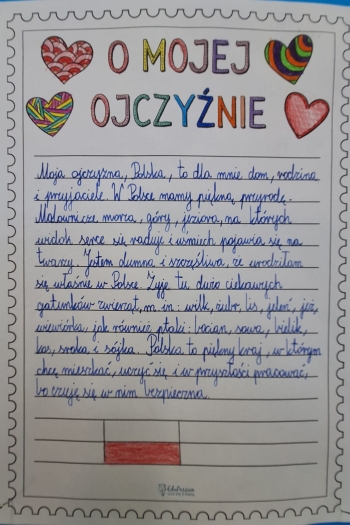 O MOJEJ
OJCZYŹNIE
Moja ojczyzna, Polska, to dla mnie dom, rodzina
i przyjaciele. W Polsce mamy piękną przyrodę.
Malownicze morza, góry, jeziora, na których
widok serce się raduje i uśmiech pojawia się na
twarzy. Jestem dumna i szczęśliwa, że urodziłam
się właśnie w Polsce. Żyje tu dużo ciekawych
gatunków zwierząt, m. in.: wilk, żubr, lis, jeleń, jeż,
wiewiórka, jak również ptaki: bocian, sowa, bielik,
kos, sroka i sójka. Polska to piękny kraj, w którym
chcę mieszkać, uczyć się i w przyszłości pracować,
bo czuję się w nim bezpieczna.